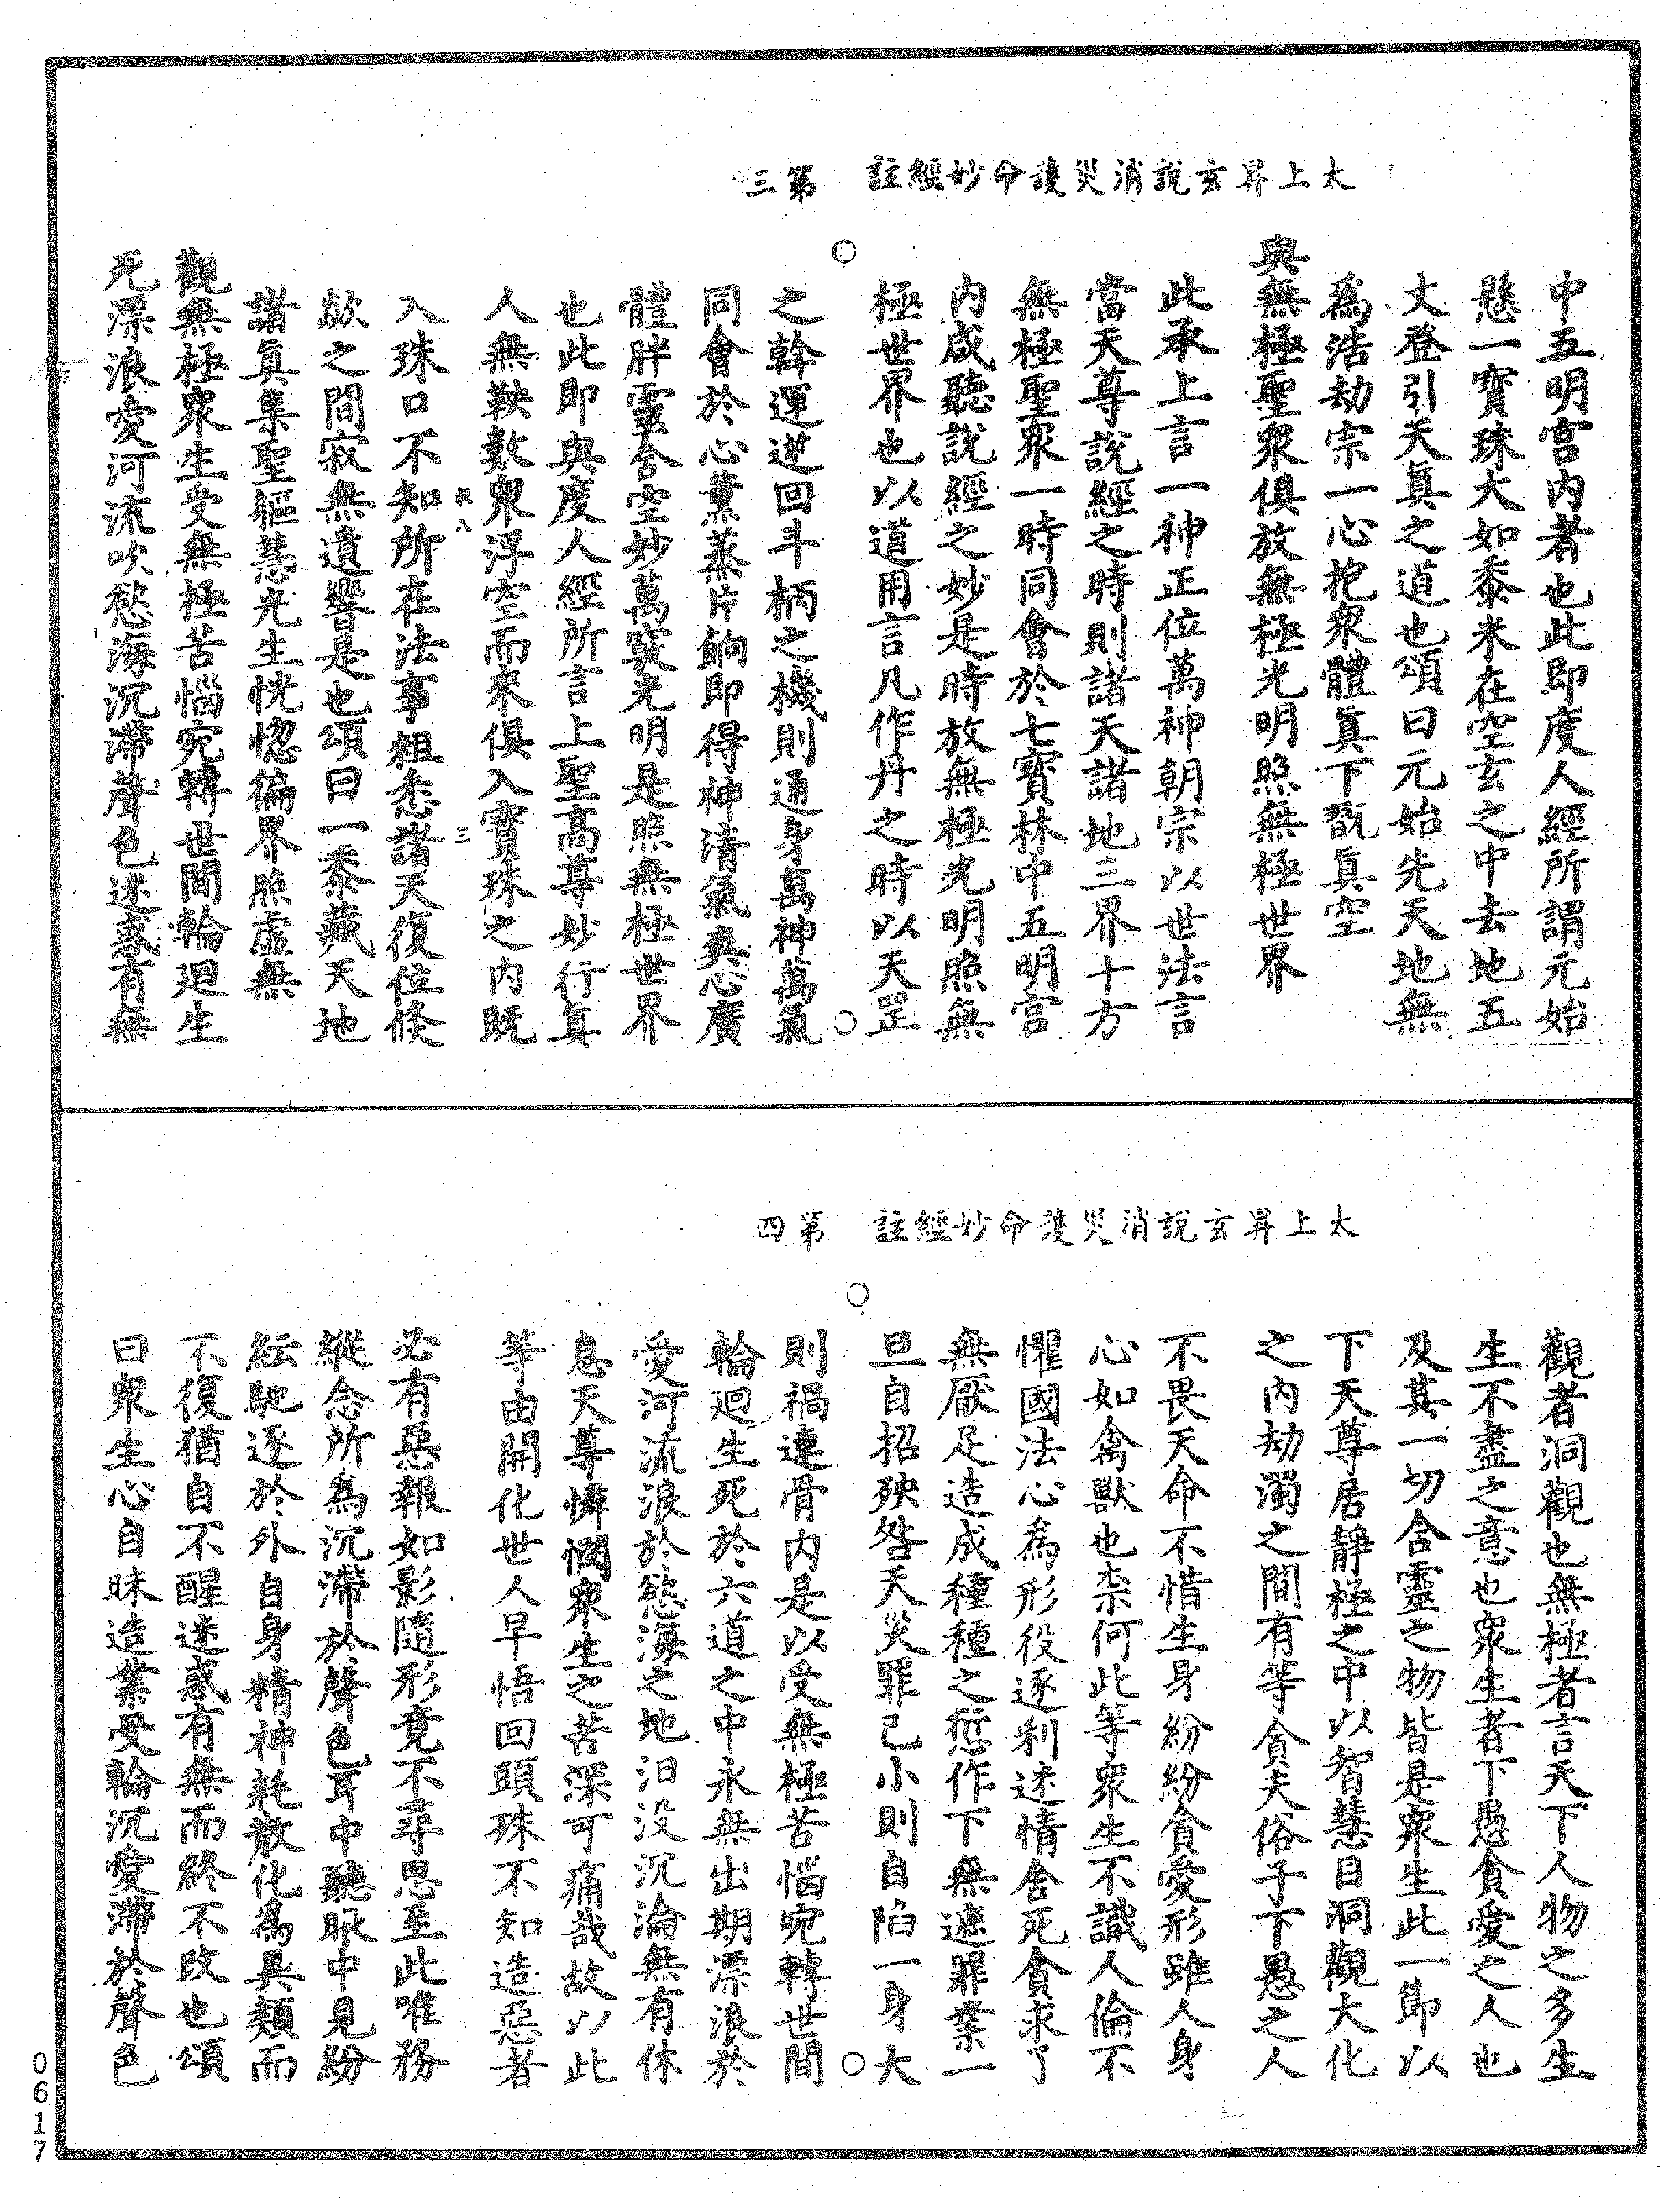 太上昇玄說消災護命妙經註 第三
中五明宮内者也此即度人經所謂元始
懸一寳珠大如黍米在空玄之中去地五
丈登引天眞之道也頌曰元始先天地無
爲浩劫宗一心抱衆體真下翫真空
與無極聖衆俱放無極光明照無極世界
此承上言一神正位萬神朝宗以世法言
當天尊說經之時則諸天諸地三界十方
無極聖衆一時同會於七寳林中五明宮
内咸聽說經之妙是時放無極光明照無
極世界也以道用言凡作丹之時以天罡
之斡運逆回斗柄之機則通身萬神萬氣
同會於心薰蒸片餉即得神清氣爽心廣
體胖靈含空妙萬竅光明是照無極世界
也此即與度人經所言上聖高尊妙行眞
人無鞅數衆浮空而來俱入寳珠之内既
入珠口不知所在法事粗悉諸天復位倐
歘之間寂無遺響是也頌曰一黍藏天地
諸眞集聖軀慧光生恍惚徧界照虛無
觀無極衆生受無極苦惱宛轉世間輪迴生
死漂浪愛河流吹慾海沉滯聲色迷惑有無
太上昇玄說消災護命妙經註 第四
觀者洞觀也無極者言天下人物之多生
生不盡之意也衆生者下愚貪愛之人也
及其一切含靈之物皆是衆生此一節以
下天尊居靜極之中以智慧目洞觀大化
之内劫濁之間有等貪夫俗子下愚之人
不畏天命不惜生身紛紛貪愛形雖人身
心如禽獸也柰何此等衆生不識人倫不
懼國法心爲形役逐利迷情舍死貪求了
無厭足造成種種之愆作下無邊罪業一
旦自招殃咎天災罪已小則自陷一身大
則禍連骨内是以受無極苦惱宛轉世間
輪迴生死於六道之中永無出期漂浪於
愛河流浪於慾海之地汨没沉淪無有休
息天尊憐憫衆生之苦深可痛哉故以此
等由開化世人早悟回頭殊不知造惡者
必有惡報如影隨形竟不尋思至此唯務
縱念所爲沉滯於聲色耳中聽眼中見紛
紜馳逐於外自身精神耗散化爲異類而
不復猶自不醒迷惑有無而終不改也頌
曰衆生心自昧造業受輪沉愛滯於聲色
0617